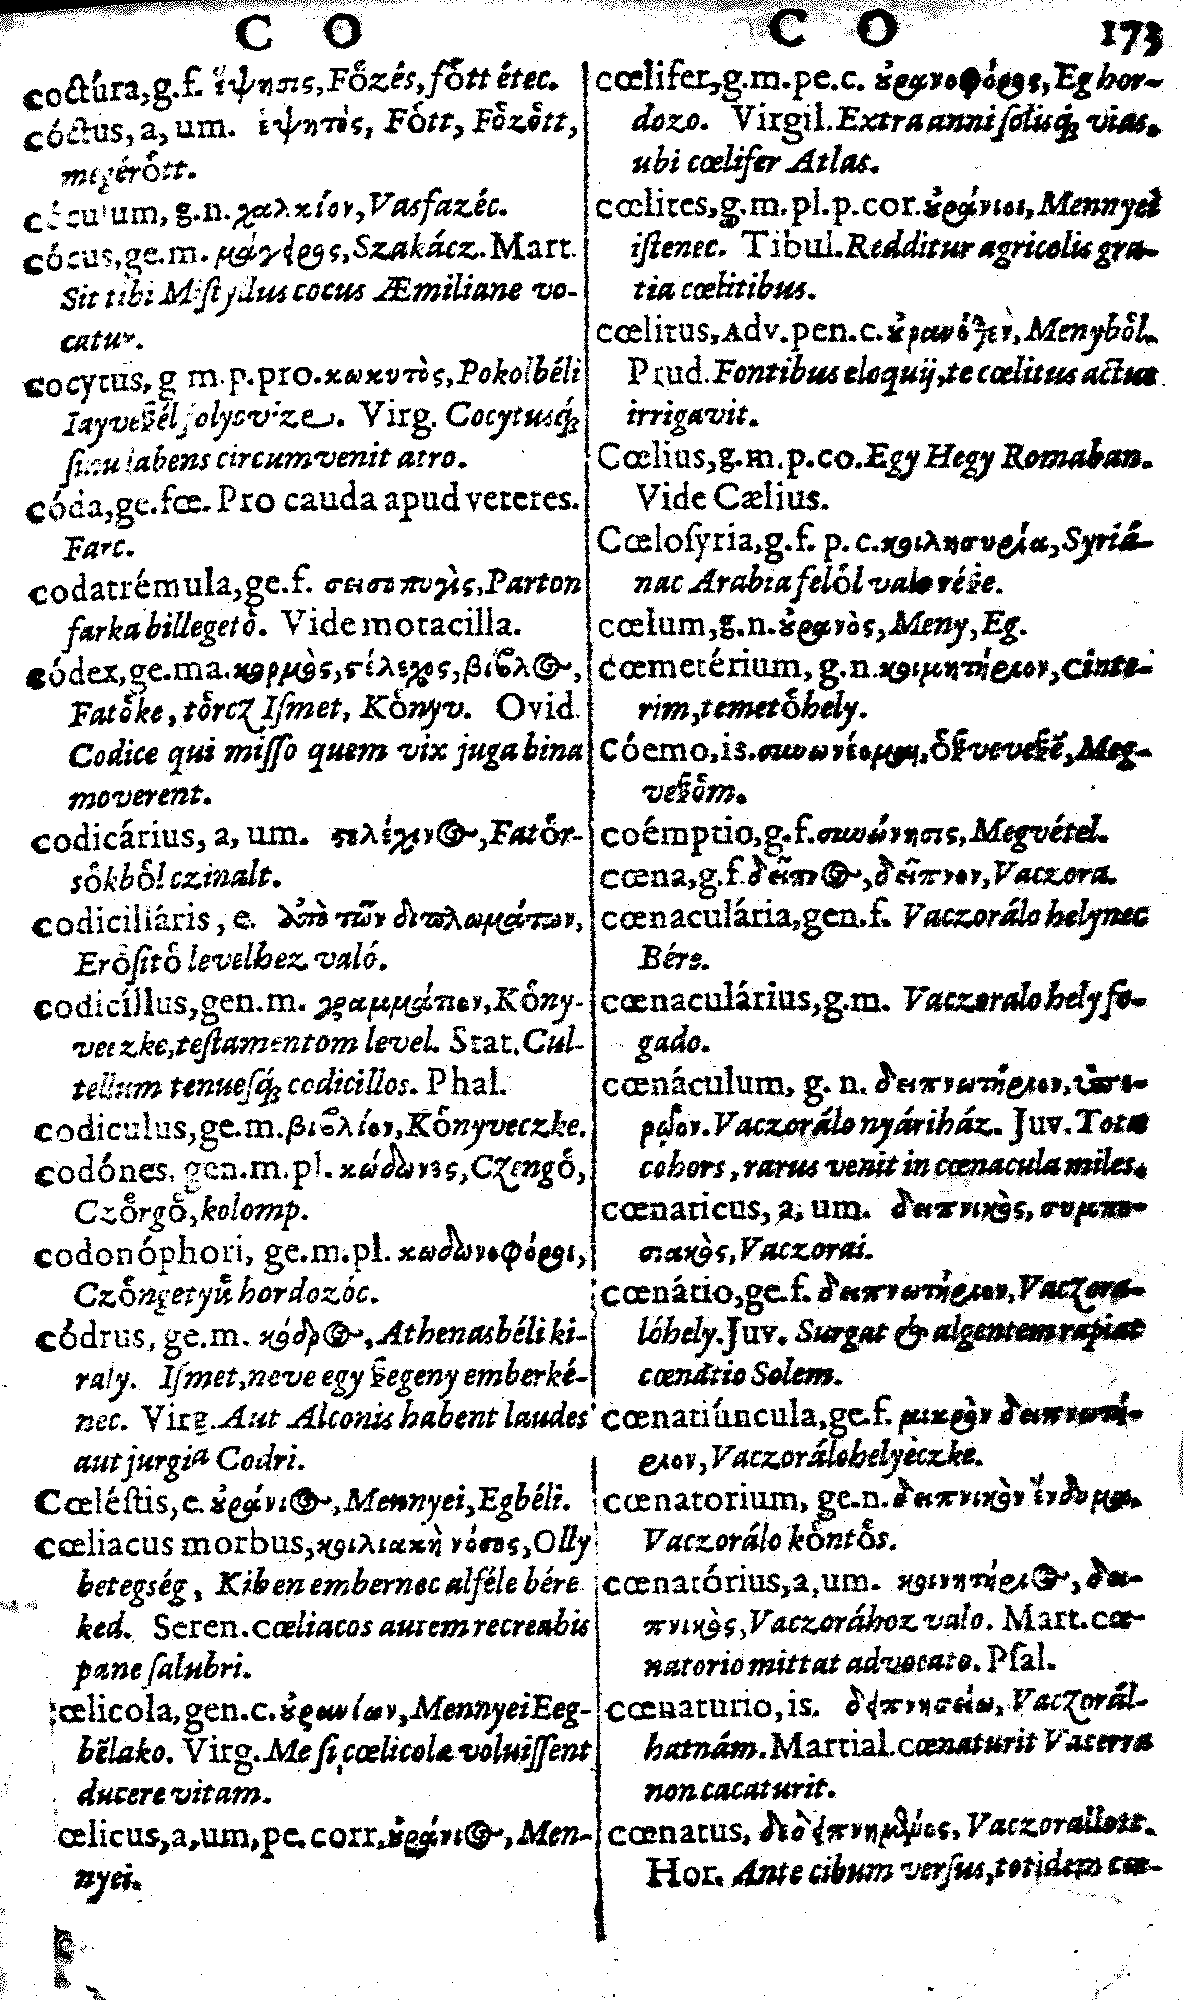 C O
C O 173
coctúra, g.f. ἕψησις, Fo̊zés, fo̊tt étec.
cóctus, a, um. ἑψητὸς, Fo̊tt, Fo̊zo̊tt,
megéro̊tt.
cóculum, g.n. χαλκίον, Vasfazéc.
cócus, ge.m. μάγειρος, Szakácz. Mart.
Sit tibi Miſtyllus cocus Æmiliane vo-
catur.
cocytus, g m.p.pro. κωκυτὸς, Pokolbéli
Virg. Cocytusq́;
ſinu labens circumvenit atro.
códa, ge.fœ. Pro cauda apud veteres.
Farc.
codatrémula, ge.f. σεισοπυγὶς, Parton
farka billegeto̊. Vide motacilla.
códex, ge.ma. κορμὸς, στέλεχος, βίβλος,
Fato̊ke, to̊rcz Iſmet, Ko̊nyv. Ovid.
Codice qui miſſo quem vix juga bina
moverent.
codicárius, a, um. στελέχινος, Fato̊r-
so̊kbo̊l czinalt.
codicilláris, e. ἀπὸ τῶν διπλωμάτων,
Ero̊ſito̊ levelhez való.
codicíllus, gen.m. γραμμάτιον, Ko̊ny-
veczke, teſtamentom level. Stat. Cul-
tellum tenueſq́; codicillos. Phal.
codiculus, ge.m. βιβλίον, Ko̊nyveczke.
codónes, gen.m.pl. κώδωνες, Czengo̊,
Czo̊rgo̊, kolomp.
codonóphori, ge.m.pl. κωδωνοφόροι,
Czo̊ngetyu̇̊ hordozóc.
códrus, ge.m. κόδρος, Athenasbéli ki-
raly. Iſmet, neve egy ſzegeny emberké-
nec. Virg. Aut Alconis habent laudes
aut jurgia Codri.
Cœléſtis, e. οὐράνιος, Mennyei, Egbéli.
cœliacus morbus, κοιλιακὴ νόσος, Olly
betegség, Kiben embernec alféle bére
ked. Seren. cœliacos autem recreabis
pane ſalubri.
cœlicola, gen.c. οὐρανίων, Mennyei Eeg-
bēlako. Virg. Me ſi, cœlicolæ voluiſſent
ducere vitam.
œlicus, a, um, pe. corr, οὐράνιος, Men-
nyei.
cœlifer, g.m.pe.c. οὐρανοφόρος, Eg hor-
dozo. Virgil. Extra anni ſoliſq́; vias,
ubi cœlifer Atlas.
cœlites, g.m.pl.p.cor. οὐράνιοι, Mennyei
iſtenec. Tibul. Redditur agricolis gra-
tia cœlitibus.
cœlitus, Adv. pen.c. οὐρανόθεν, Menybo̊l.
Prud. Fontibus eloquij, te cœlitus actus
irrigavit.
Cœlius, g.m.p.co. Egy Hegy Romaban.
Vide Cælius.
Cœloſyria, g.f. p.c. κοιλησυρία, Syriá-
nac Arabia felo̊l valo réſze.
cœlum, g.n. οὐρανὸς, Meny, Eg.
cœmetérium, g.n. κοιμητήριον, Cinte-
rim, temeto̊hely.
Cóemo, is. συνωνέομαι, o̊ſzveveſzē, Meg-
veſzo̊m.
coémptio, g.f. συνώνησις, Megvétel.
cœna, g.f. δεῖπνος, δεῖπνον, Vaczora.
cœnaculária, gen.f. Vaczorálo helynec
Bére.
cœnaculárius, g.m. Vaczoralo hely fo-
gado.
cœnáculum, g. n. δειπνωτήριον, ὑπε-
ρῷον. Vaczorálo nyáriház. Juv. Tota
cohors, rarus venit in cœnacula miles.
cœnaticus, a, um. δειπνικὸς, συμπο-
σιακὸς, Vaczorai.
cœnátio, ge.f. δειπνωτήριον, Vaczora-
lóhely. Juv. Surgat & algentem rapiat
cœnatio Solem.
cœnatiúncula, ge.f. μικρὸν δειπνωτή-
ριον, Vaczorálohelyèczke.
cœnatorium, ge.n. δειπνικὸν ἔνδυμα.
Vaczorálo ko̊nto̊s.
cœnatórius, a, um. κοινητήριος, δει-
πνικὸς, Vaczorához valo. Mart. cœ-
natorio mittat advocato. Pſal.
cœnaturio, is. δειπνησείω, Vaczorál-
hatnám. Martial. cœnaturit Vacerra
non cacaturit.
cœnatus, δεδειπνημένος, Vaczorallott.
Hor. Ante cibum verſus, totidem cœ-